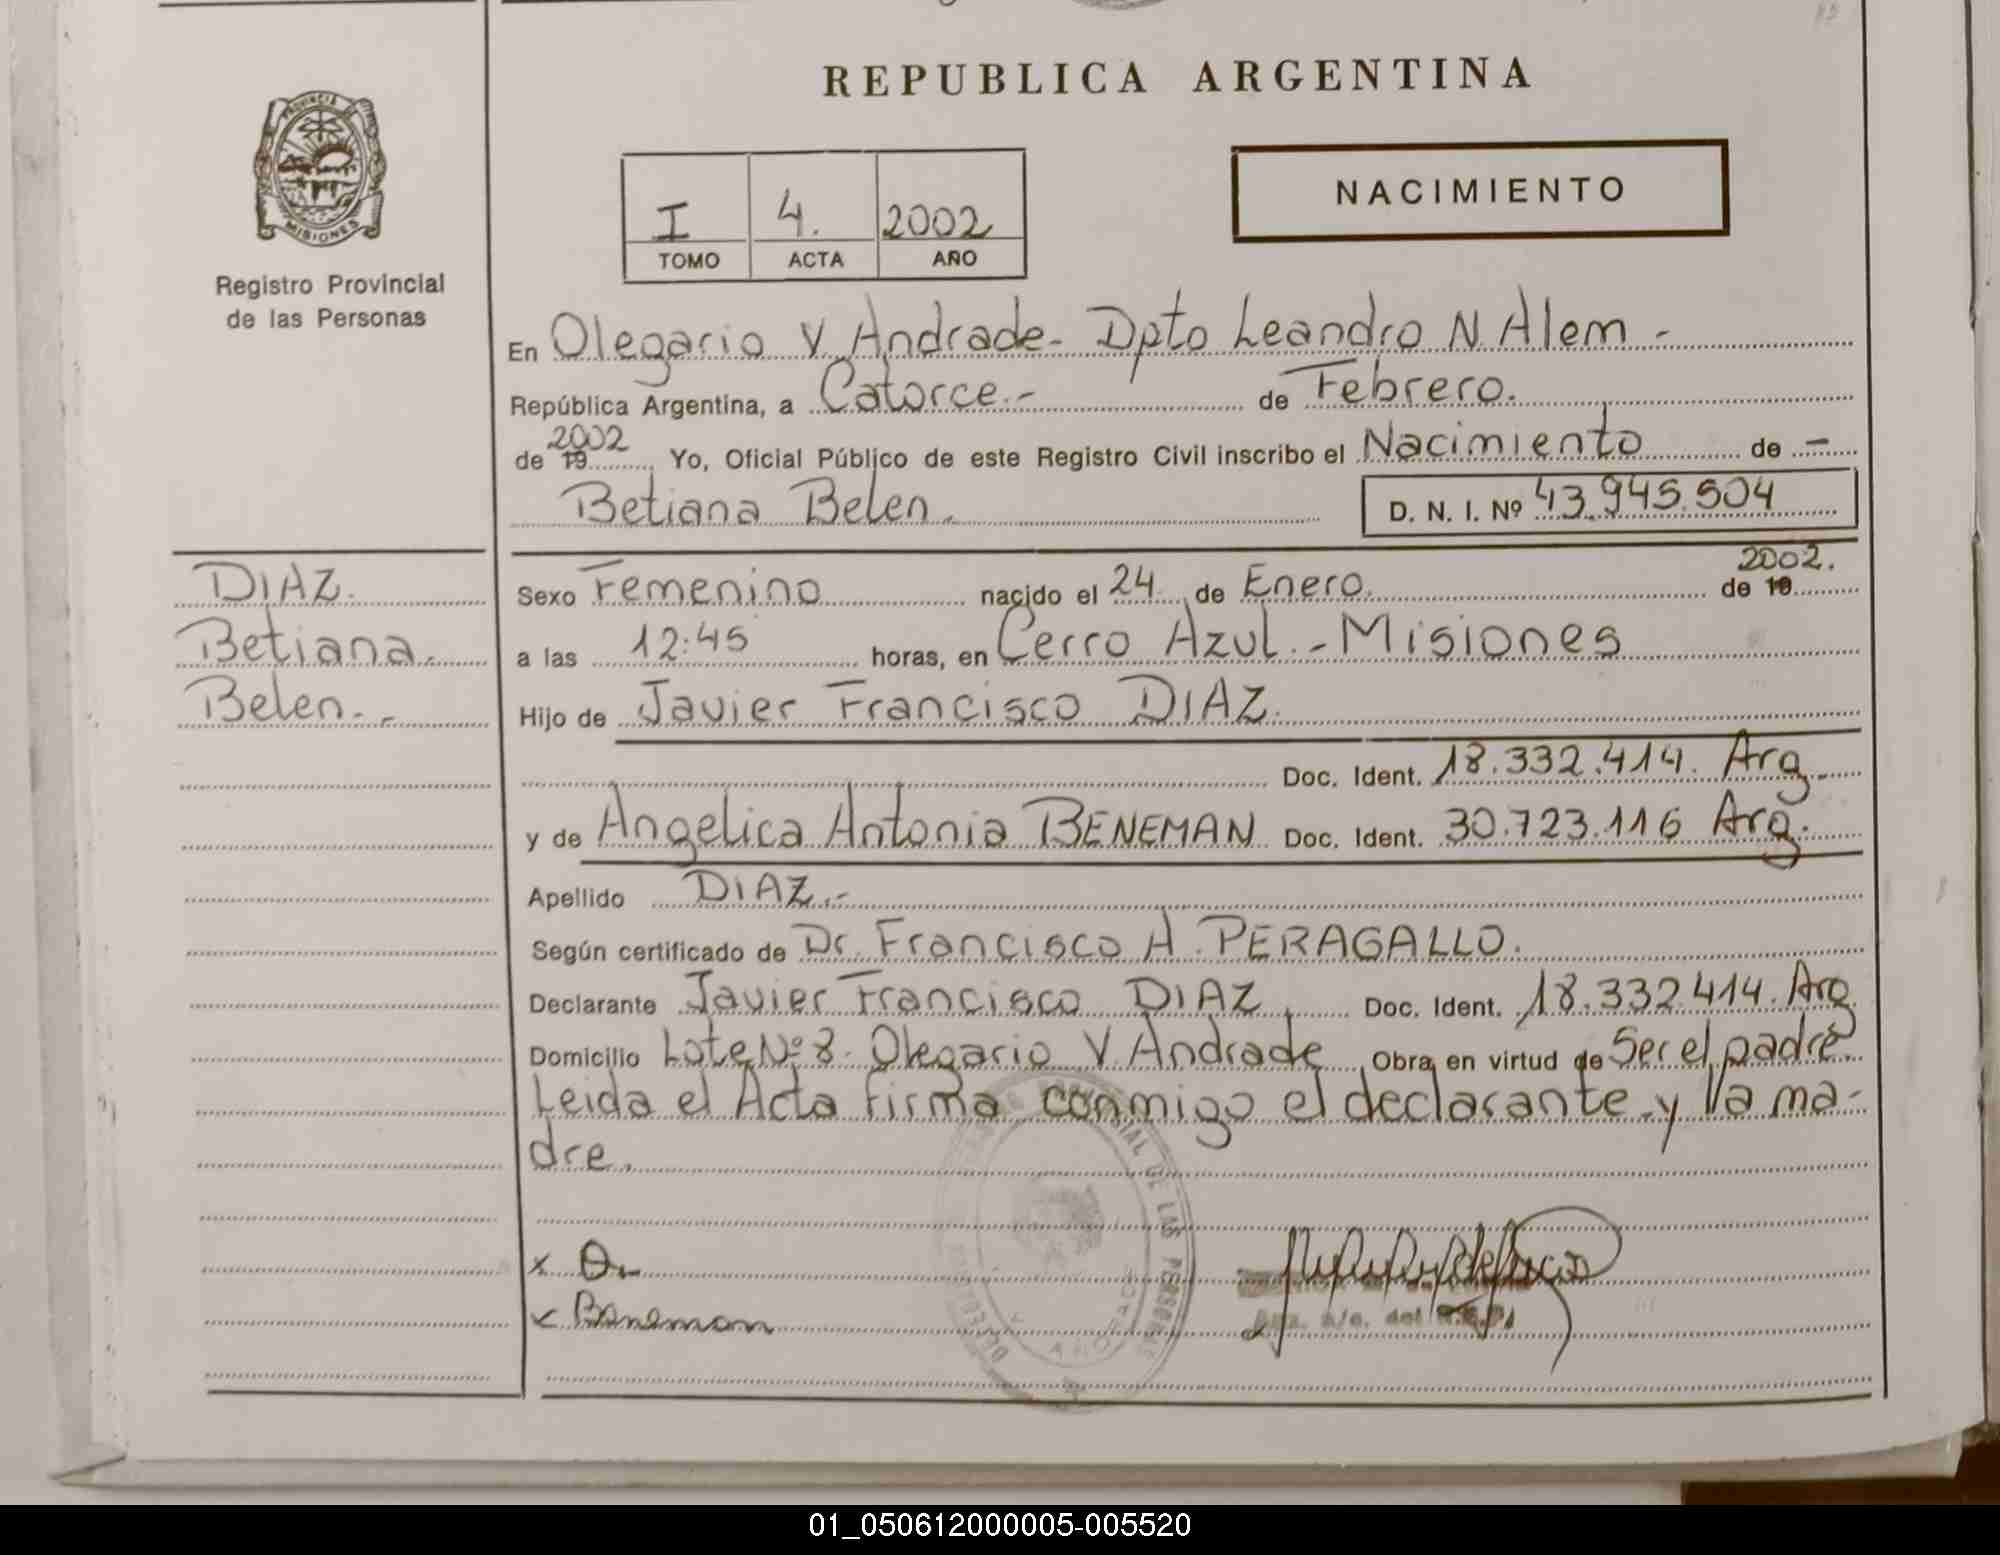 REPUBLICA ARGENTINA
PROVINCIA DE
MISIONES
Registro Provincial
de las Personas
I 4. 2002
TOMO ACTA AÑO
NACIMIENTO
En Olegario V. Andrade - Dpto Leandro N. Alem -
República Argentina, a Catorce.- de Febrero.
2002
de 19 Yo, Oficial Público de este Registro Civil inscribo el Nacimiento de -
Betiana Belen. D. N. I. Nº 43.945.504
DIAZ.
Betiana.
Belen.-
2002.
Sexo Femenino nacido el 24 de Enero. de 19
a las 12:45 horas, en Cerro Azul.- Misiones
Hijo de Javier Francisco DIAZ.
Doc. Ident. 18.332.414. Arg.
y de Angelica Antonia BENEMAN Doc. Ident. 30.723.116 Arg.
Apellido DIAZ.-
Según certificado de Dr. Francisco A. PERAGALLO.
Declarante Javier Francisco DIAZ Doc. Ident. 18.332.414. Arg
Domicilio Lote Nº 8. Olegario V. Andrade Obra en virtud de Ser el padre
Leida el Acta firma conmigo el declarante y la ma-
dre.
x
x Beneman
DE LAS PERSONAS
01_050612000005-005520